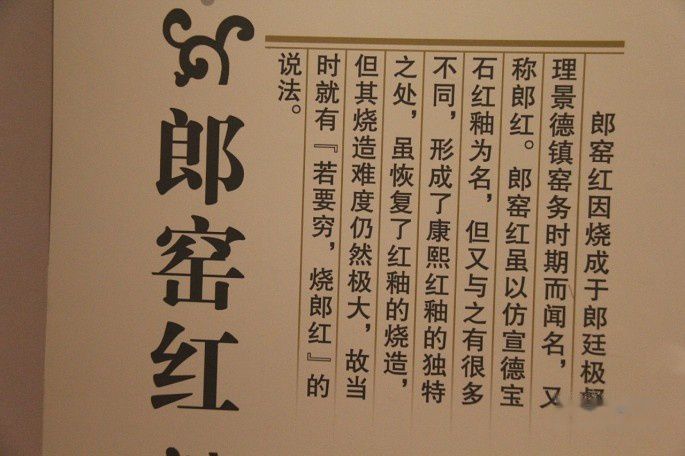 郎窑红
郎窑红因烧成于郎廷极督
理景德镇窑务时期而闻名，又
称郎红。郎窑红虽以仿宣德宝
石红釉为名，但又与之有很多
不同，形成了康熙红釉的独特
之处，虽恢复了红釉的烧造，
但其烧造难度仍然极大，故当
时就有『若要穷，烧郎红』的
说法。